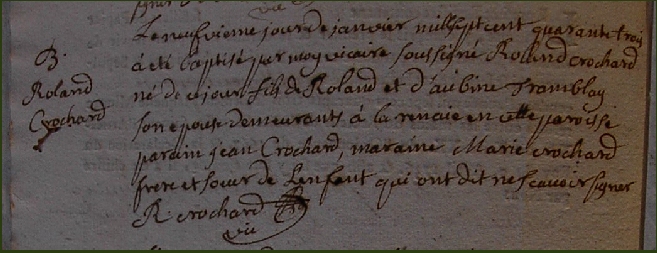 B.
Roland
Crochard
Le neufvieme jour de janvier mil sept cent quarante trois
a été baptisé par moy vicaire soussigné Roland crochard
né de ce jour fils de Roland et d'aubine Tramblay
son epouse demeurants à la renaie en cette paroisse
parain jean Crochard, maraine Marie crochard
frere et soeur de L'enfant qui ont dit ne scavoir signer
R crochard
vic